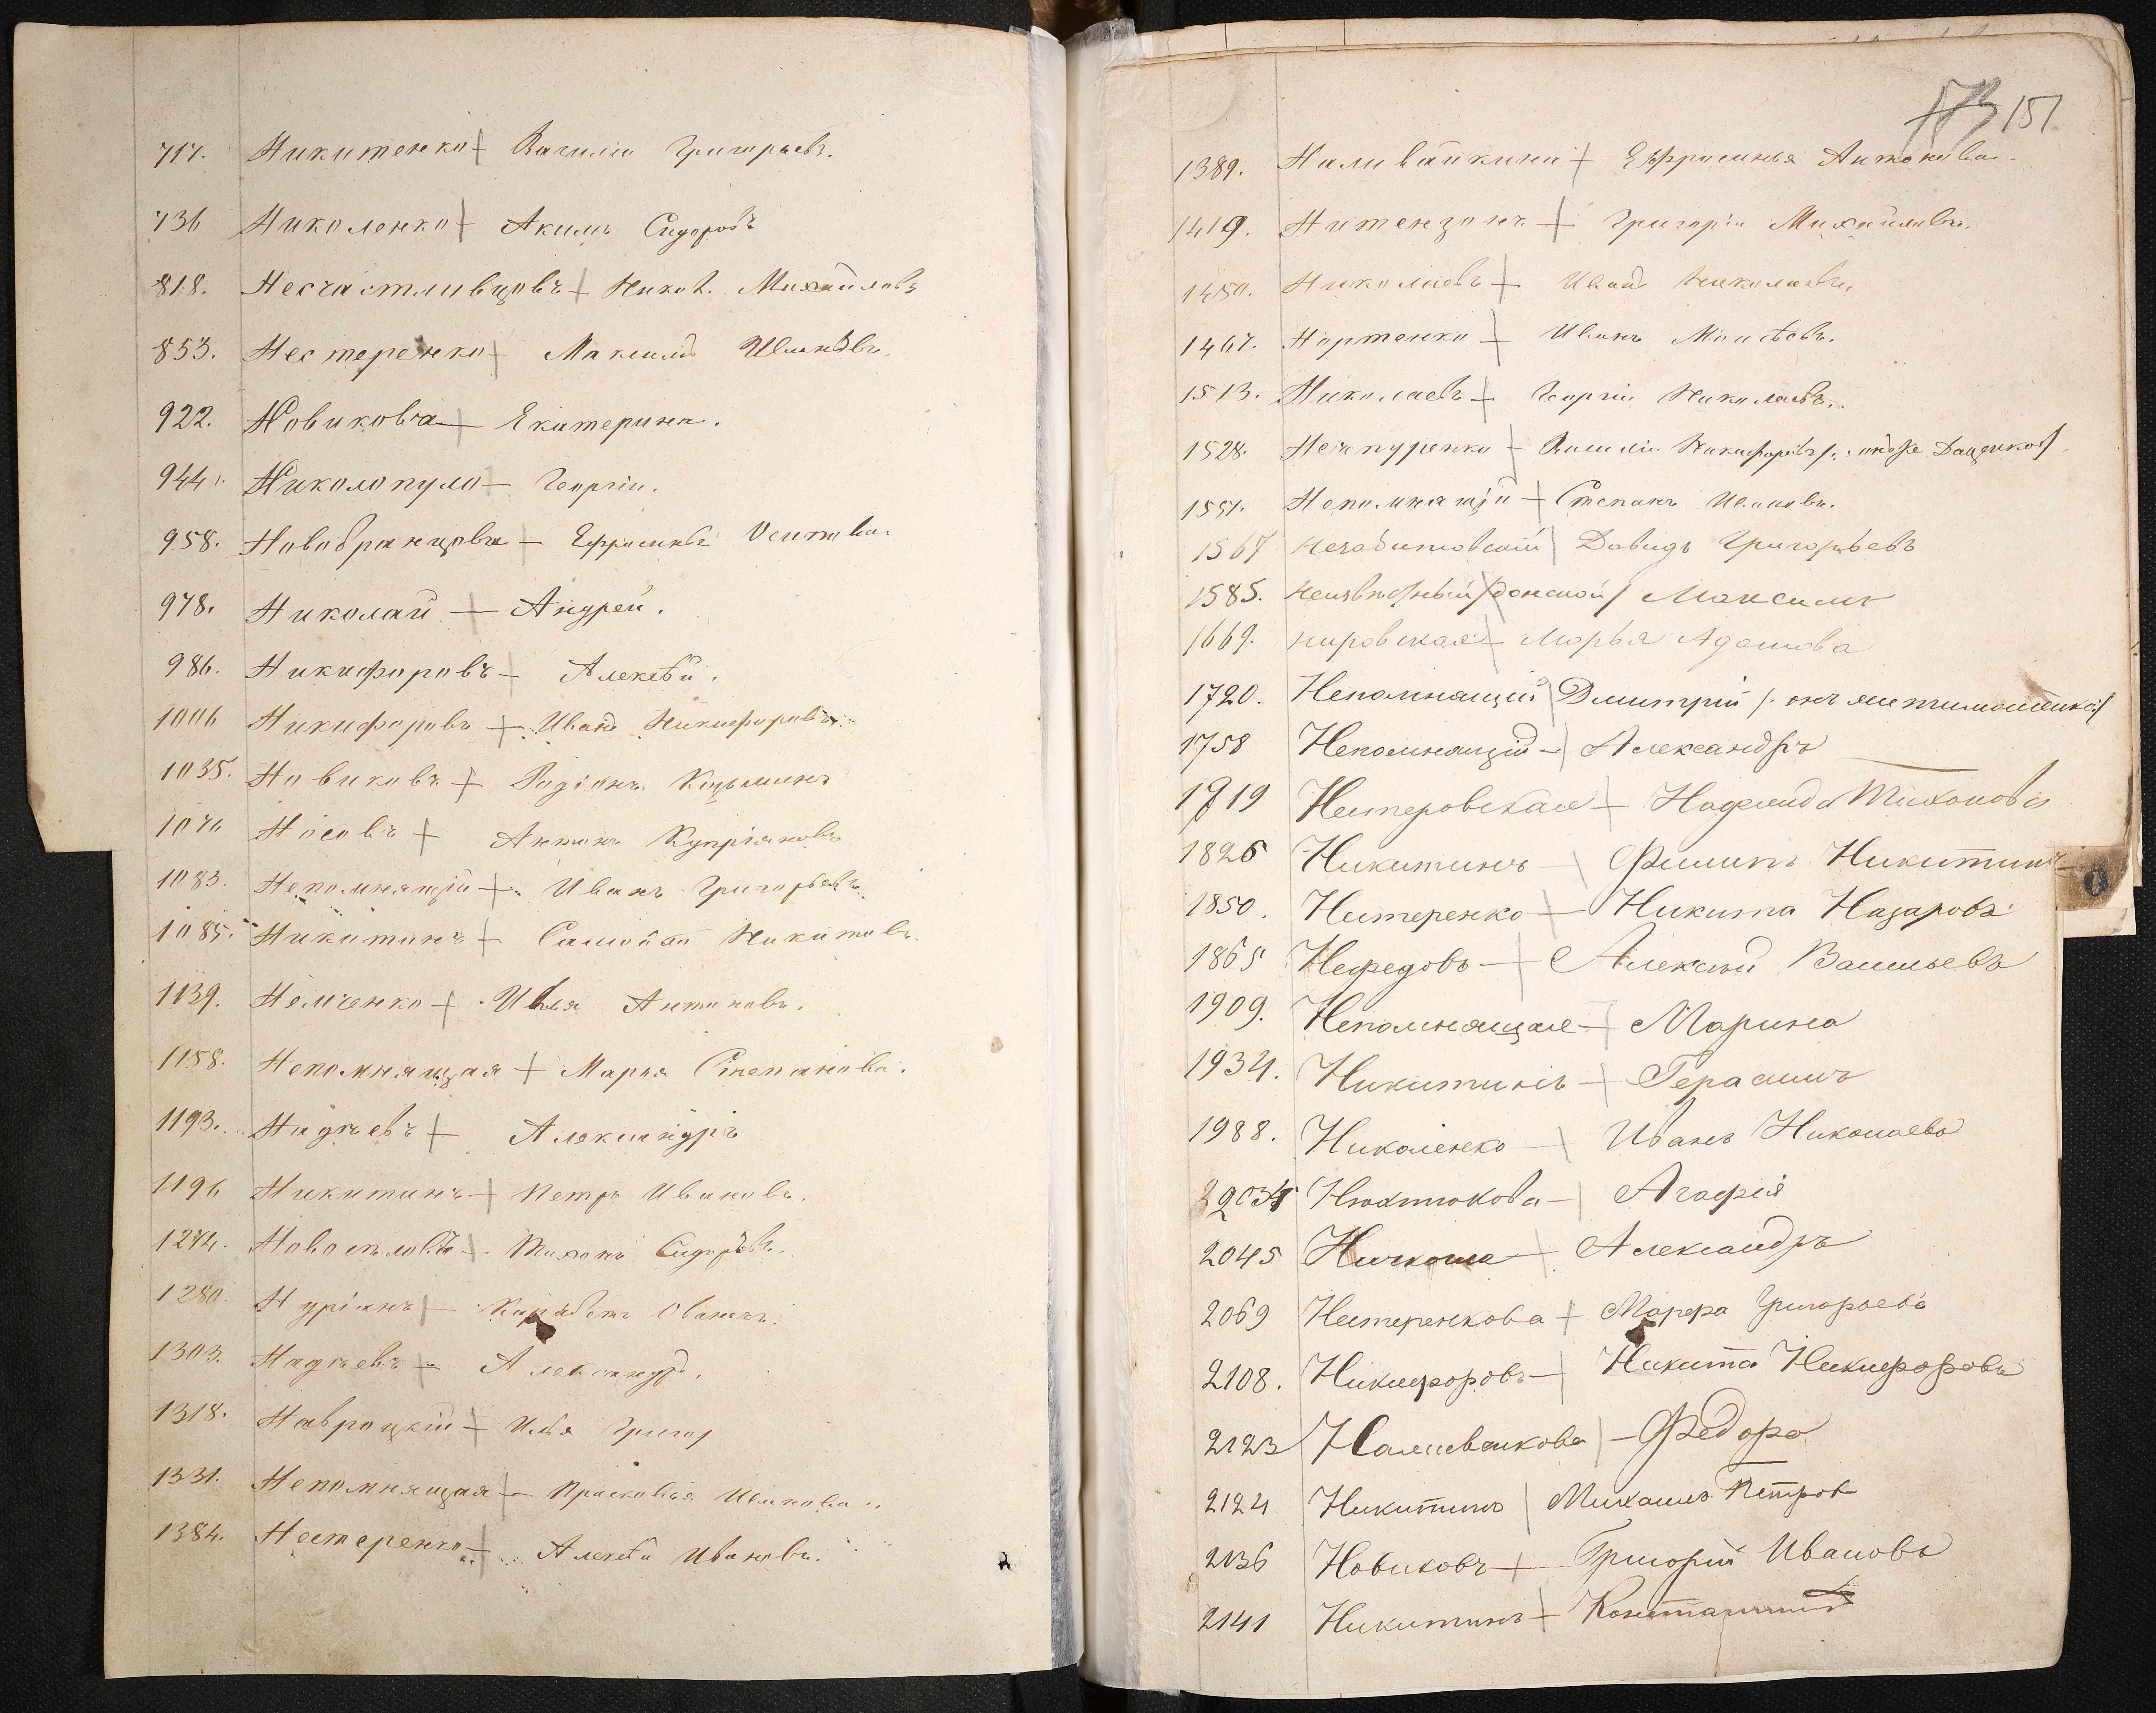 717. Никитенко Василій Григорьевъ.
736 Николенко Акимъ Сидоровъ
818. Несчастливцовъ Никол. Михайловъ
853. Нестеренко Максимъ Ивановъ.
922. Новикова Екатерина.
944. Николопуло Георгій.
958. Новобранцова Ефросинья Осипова.
978. Николай Андрей.
986. Никифоровъ Алексѣй.
1006 Никифоровъ Иванъ Никифоровъ.
1035. Новиковъ Родіонъ Козьминъ
1076 Носовъ Антонъ Купріяновъ
1083. Непомнящій Иванъ Григорьевъ.
1085. Никитинъ Никитовъ.
1139. Немченко Илья Антоновъ.
1158. Непомнящая Марья Степанова.
1193. Надѣевъ Александръ
1196 Никитинъ Петръ Ивановъ.
1274. Новоселовъ Тихонъ Сидоровъ.
1280. Нуріанъ Карабетъ
1303. Надѣевъ Александръ.
1318. Навроцкій Илья Григор
1331. Непомнящая Прасковья Иванова.
1384. Нестеренко Алексѣй Ивановъ.
173 151
1389. Наливайкина Ефросинья Антонова.
1419. Нитензонъ Григорій Михайловъ.
1450. Николаевъ Иванъ Николаевъ.
1467. Нортенко Иванъ Моисѣевъ.
1513. Николаевъ Георгій Николаевъ.
1528. Нечепуренко Василій Никифоровъ /: онъ же Даценко /
1551. Непомнящій Степанъ Ивановъ.
1567 Незабитовскій Давидъ Григорьевъ
1585. Неизвѣстный /Донской/ Максимъ
1669. Нировская Марья Адамова
1720. Непомнящій Дмитрій /: онъ же Тимошенко/
1758 Непомнящій Александръ
1819 Нестеровская Надежда Тихонова
1826 Никитинъ Филипъ Никитинъ
1850. Нестеренко Никита Назаровъ
1865 Нефедовъ Алексѣй Васильевъ
1909. Непомнящая Марина
1934. Никитинъ Герасимъ
1988. Николенко Иванъ Николаевъ
2034 Нюхтюкова Агафія
2045 Александръ
2069 Нестеренкова Марфа Григорьева
2108. Никифоровъ Никита Никифоровъ
2123 Наливайкова Федора
2124 Никитинъ Михаилъ Петров
2136 Новиковъ Григорій Ивановъ
2141 Никитинъ Константинъ